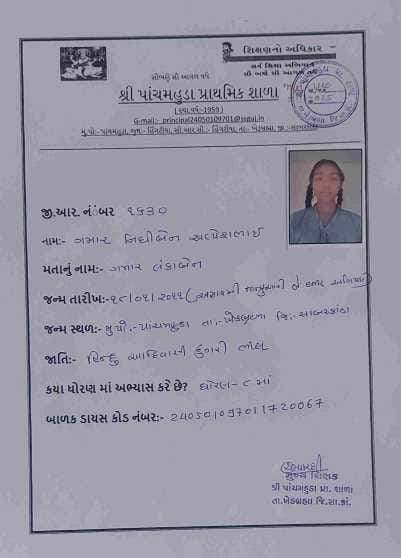 શિક્ષણનો અધિકાર
સર્વ શિક્ષા અભિયાન
સૌ ભણે સૌ આગળ વધે
સૌ ભણે સૌ આગળ વધે
શ્રી પાંચમહુડા પ્રાથમિક શાળા
(સ્થા.વર્ષ-1959)
G-mail:- principal24050109701@
મુ.પો:- પાંચમહુડા, જુથ:- હિંગટીયા, સી.આર.સી:- હિંગટીયા, તા:- ખેડબ્રહ્મા, જી:-
જી.આર. નંબર ૧૬૩૦
નામ:- ગમાર નિધીબેન અલ્પેશભાઈ
મતાનું નામ:- ગમાર લંકાબેન
જન્મ તારીખ:- ૧૮/૦૧/૨૦૧૧
જન્મ સ્થળ:- મુ.પો.- પાંચમહુડા તા. ખેડબ્રહ્મા જિ.- સાબરકાંઠા
જાતિ:- હિન્દુ આદિવાસી ડુંગરી ભીલ
કયા ધોરણ માં અભ્યાસ કરે છે? ધોરણ-૮ માં
બાળક ડાયસ કોડ નંબર:- 240501097011720067
મુખ્ય શિક્ષક
શ્રી પાંચમહુડા પ્રા. શાળા
તા.ખેડબ્રહ્મા જિ.સા.કાં.